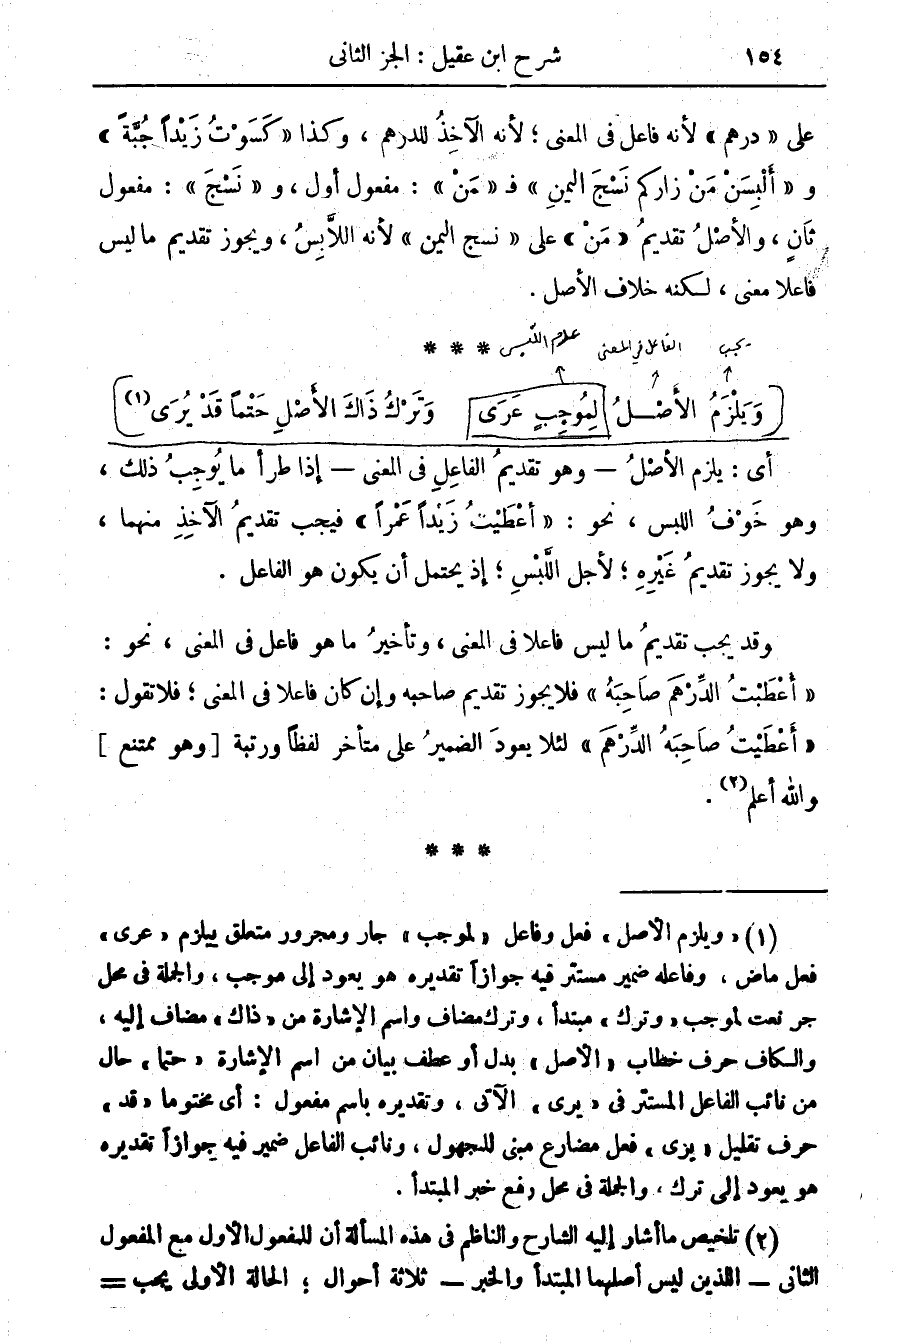 ١٥٤ شرح ابن عقيل : الجزء الثانى
على « درهم » لأنه فاعل فى المعنى ؛ لأنه الآخِذُ للدرهم ، وكذا « كَسَوْتُ زَيْداً جُبَّةً »
و « أَلْبِسَنْ مَنْ زاركم نَسْجَ اليمنِ » فـ « مَنْ » : مفعول أول ، و « نَسْجَ » : مفعول
ثَانٍ ، والأصْلُ تقديمُ « مَنْ » على « نسج اليمن » لأنه اللَّابِسُ ، ويجوز تقديم ما ليس
فاعلا معنى ، لـكنه خلاف الأصل .
يجب الفاعل في المعنى علام اللبس
* * *
وَيَلْزَمُ الأَصْـلُ لِمُوجِبٍ عَرَى وَتَرْكُ ذَاكَ الأَصْلِ حَتْماً قَدْ يُرَى (١)
أى : يلزم الأصْلُ — وهو تقديمُ الفاعِلِ فى المعنى — إذا طرأ ما يُوجِبُ ذلك ،
وهو خَوْفُ اللبس ، نحو : « أعْطَيْتُ زَيْداً عَمْراً » فيجب تقديمُ الآخِذِ منهما ،
ولا يجوز تقديمُ غَيْرِهِ ؛ لأجل اللَّبْسِ ؛ إذ يحتمل أن يكون هو الفاعل .
وقد يجب تقديمُ ما ليس فاعلا فى المعنى ، وتأخيرُ ما هو فاعل فى المعنى ، نحو :
« أَعْطَيْتُ الدِّرْهَمَ صَاحِبَهُ » فلا يجوز تقديم صاحبه وإن كان فاعلا فى المعنى ؛ فلا تقول :
« أَعْطَيْتُ صاَحِبَهُ الدِّرْهَمَ » لئلا يعودَ الضميرُ على متأخر لفظاً ورتبة [ وهو ممتنع ]
والله أعلم (٢) .
* * *
(١) « ويلزم الأصل » فعل وفاعل « لموجب » جار ومجرور متعلق بيلزم « عرى »
فعل ماض ، وفاعله ضمير مستتر فيه جوازاً تقديره هو يعود إلى موجب ، والجملة فى محل
جر نعت لموجب « وترك » مبتدأ ، وترك مضاف واسم الإشارة من « ذاك » مضاف إليه ،
والـكاف حرف خطاب « الأصل » بدل أو عطف بيان من اسم الإشارة « حتما » حال
من نائب الفاعل المستتر فى « يرى » الآتى ، وتقديره باسم مفعول : أى محتوما « قد »
حرف تقليل « يرى » فعل مضارع مبنى للمجهول ، ونائب الفاعل ضمير فيه جوازاً تقديره
هو يعود إلى ترك ، والجملة فى محل رفع خبر المبتدأ .
(٢) تلخيص ما أشار إليه الشارح والناظم فى هذه المسألة أن للمفعول الأول مع المفعول
الثانى — اللذين ليس أصلهما المبتدأ والخبر — ثلاثة أحوال ؛ الحالة الأولى يجب =